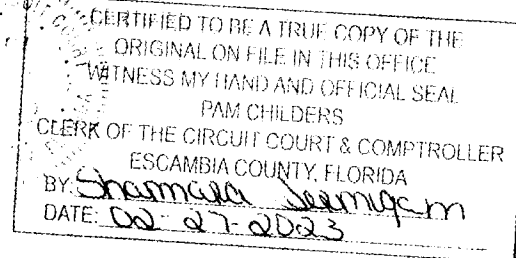 CERTIFIED TO BE A TRUE COPY OF THE
ORIGINAL ON FILE IN THIS OFFICE
WITNESS MY HAND AND OFFICIAL SEAL
PAM CHILDERS
CLERK OF THE CIRCUIT COURT & COMPTROLLER
ESCAMBIA COUNTY, FLORIDA
BY:
DATE: 02-27-2023